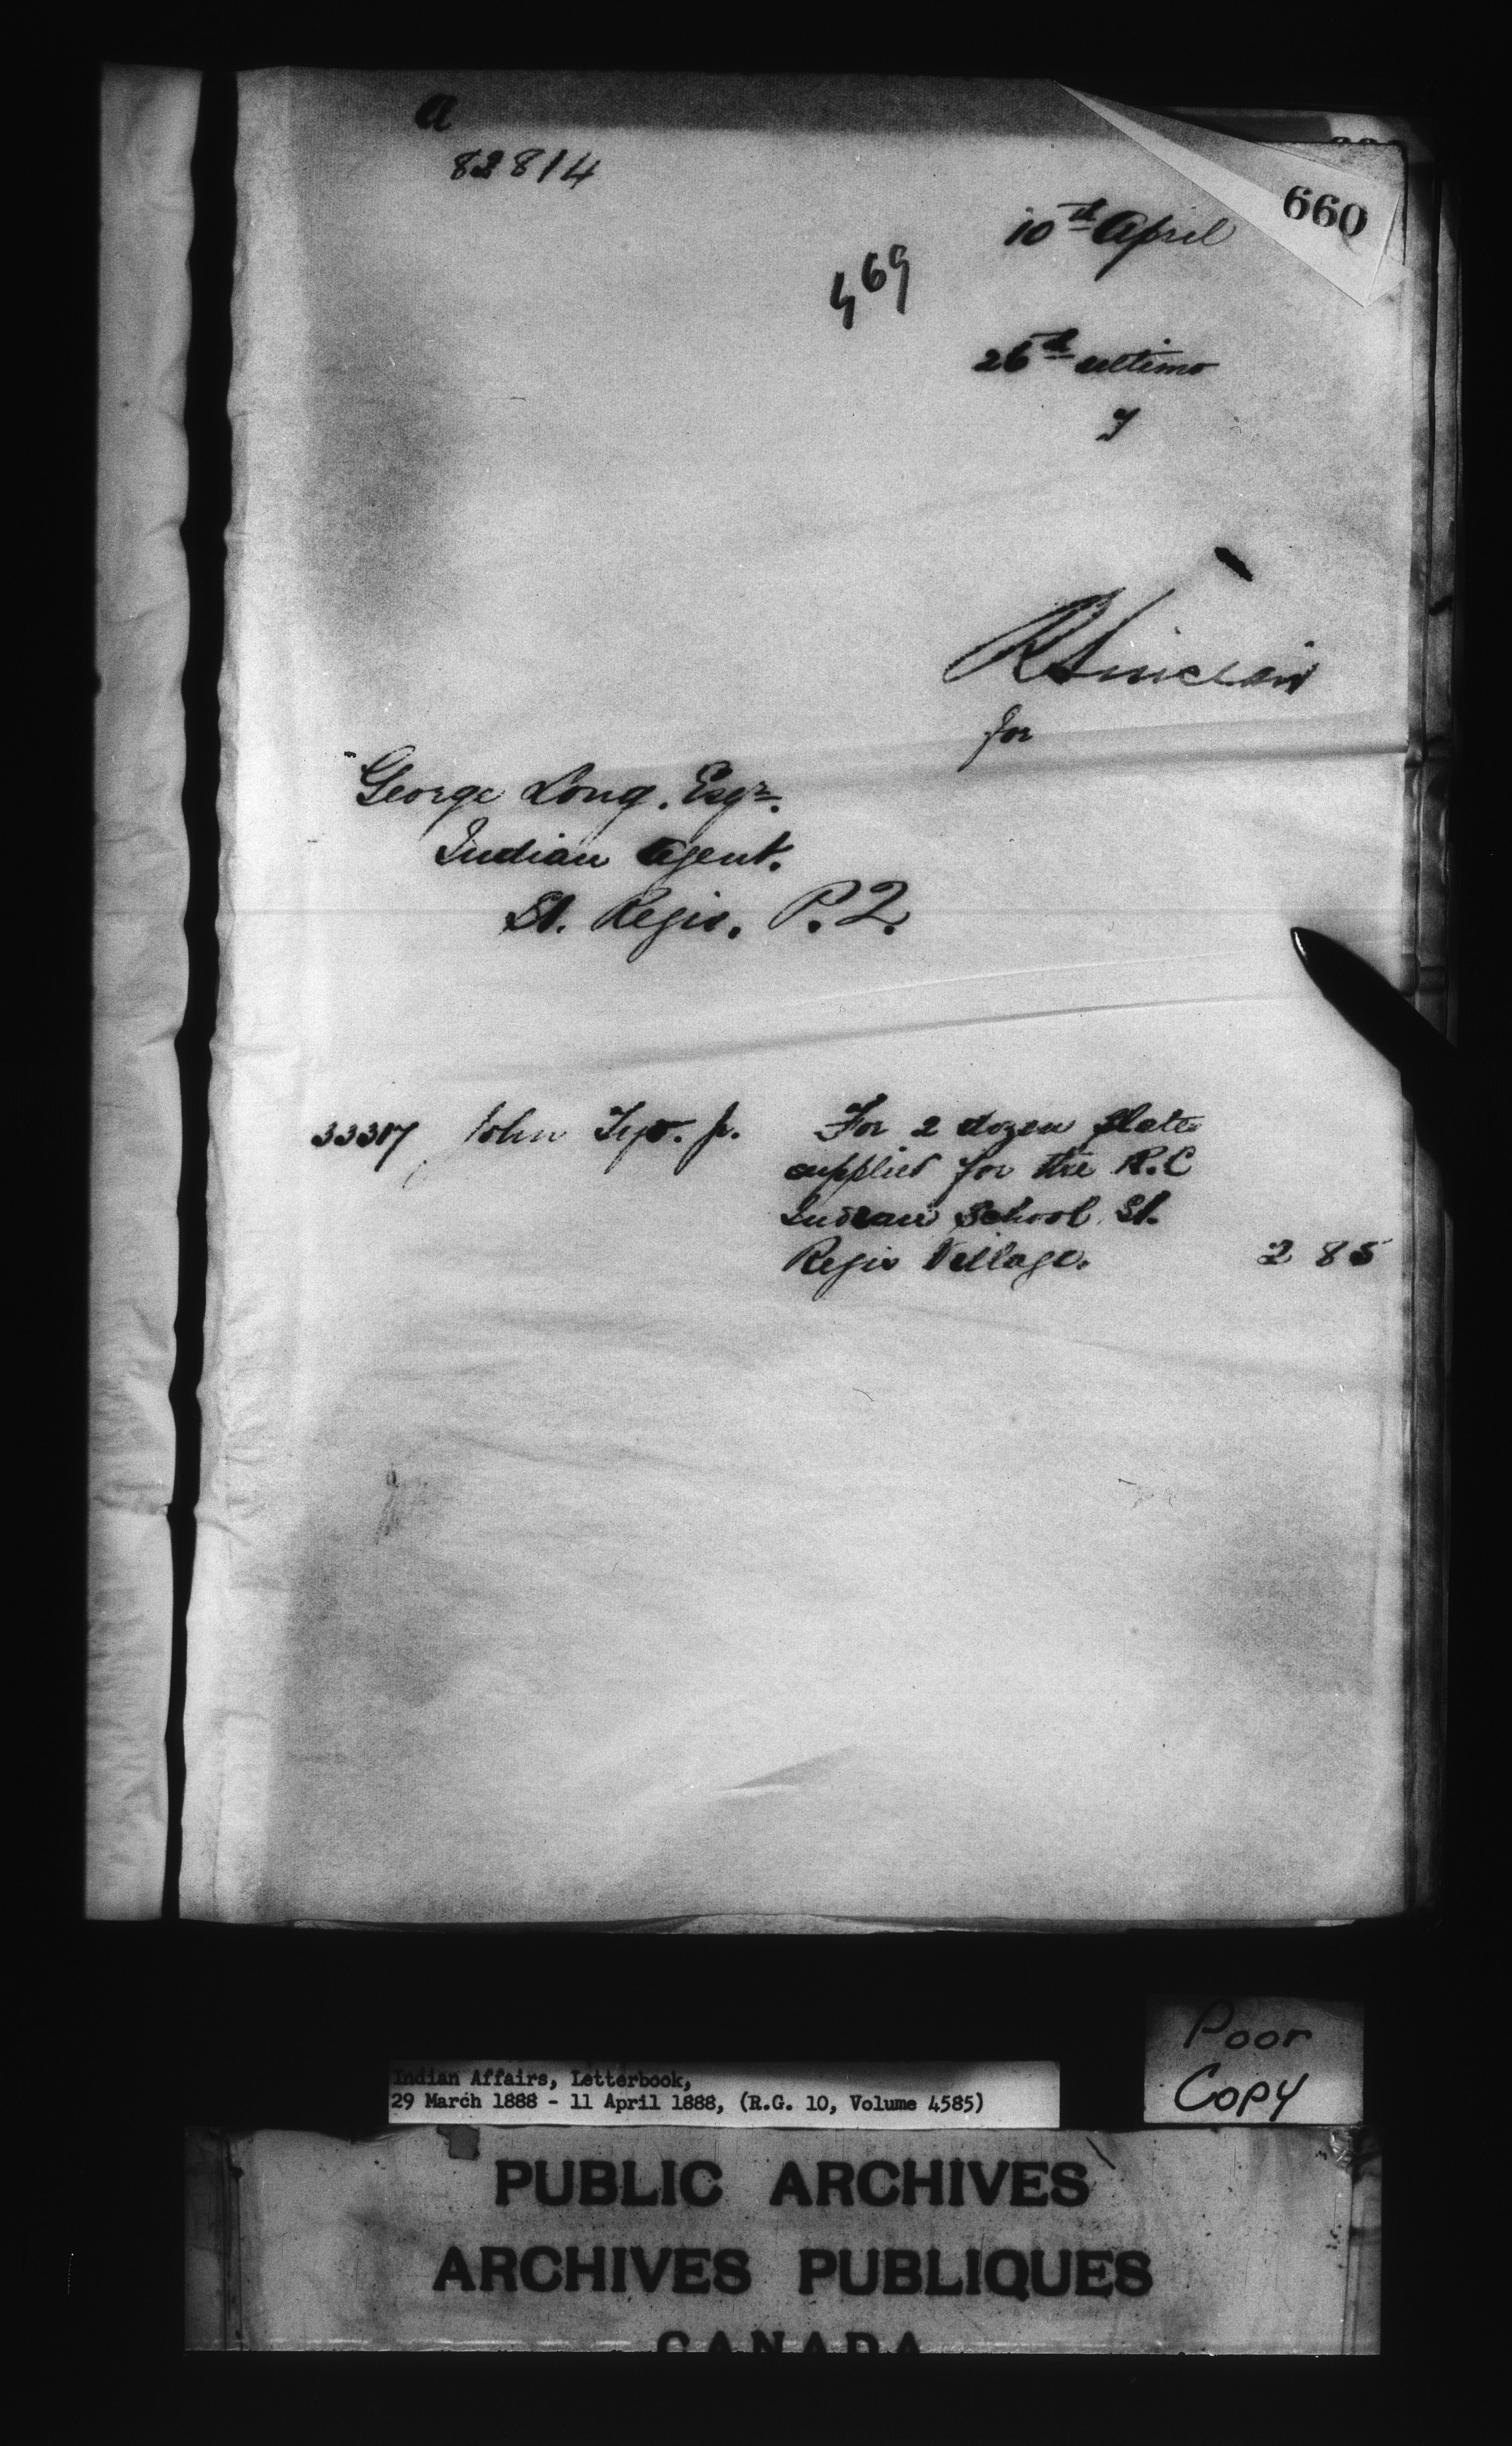 a
82814
660
10th April
469
26th ultimo
y
R Sinclair
for
George Long. Esqr.
Indian Agent.
St. Regis. P.Q.
John Jr. For 2 dozen slates
supplied for the R.C
Indian School St.
Regis Village. 2 85
Poor
Copy
Indian Affairs, Letterbook,
29 March 1888 - 11 April 1888, (R.G. 10, Volume 4585)
PUBLIC ARCHIVES
ARCHIVES PUBLIQUES
CANADA